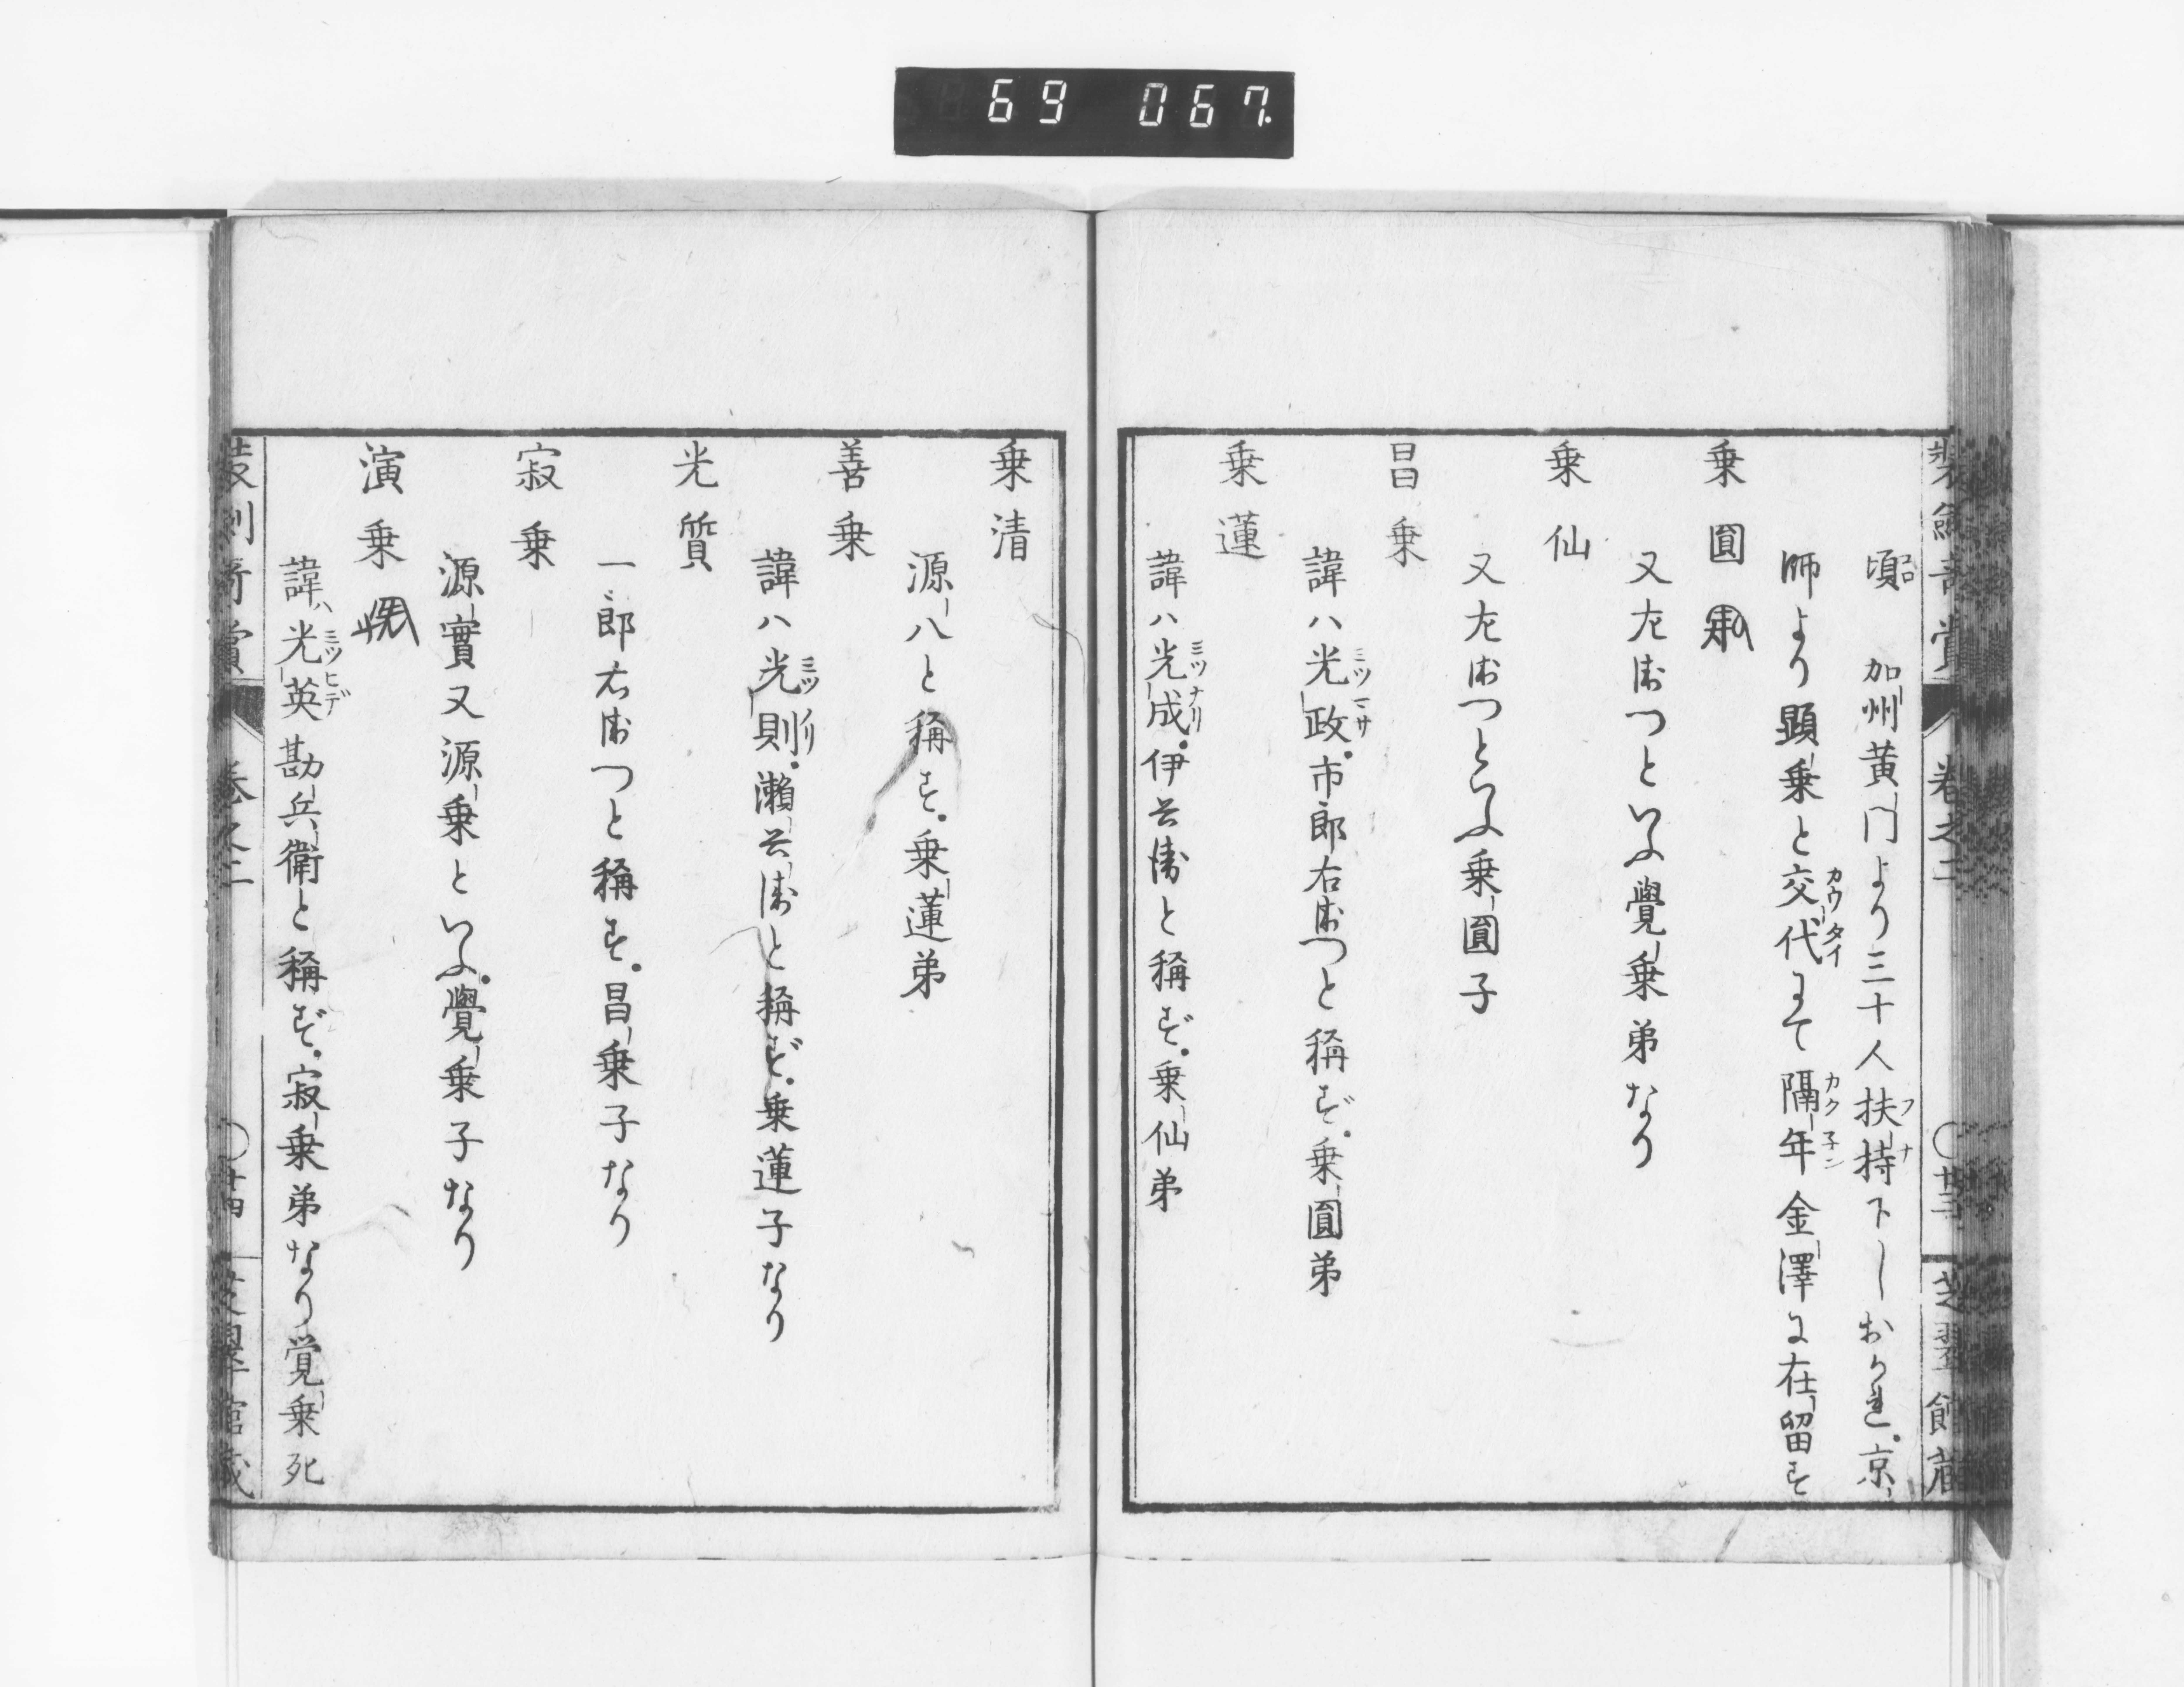 69 067.
装剣奇賞 巻之二 ○廿三 芝翠館蔵
頃 加州黄門より三十人扶持下しおかれ。京
コロ フチ
師より顕乗と交代にて隔年金澤に在留す
カウタイ カクネン
乗圓
又左衛門といふ覺乗弟なり
乗仙
又左衛門といふ乗圓子
昌乗
諱ハ光政。市郎右衛門と稱ず。乗圓弟
ミツマサ
乗蓮
諱ハ光成。伊兵衛と稱ず。乗仙弟
ミツナリ
乗清
源八と稱す。乗蓮弟
善乗
諱ハ光則。瀬兵衛と稱ず。乗蓮子なり
ミツノリ
光質
一郎右衛門と稱す。昌乗子なり
寂乗
源實又源乗といふ。覺乗子なり
演乗
諱ハ光英勘兵衛と稱ず。寂乗弟なり覚乗死
ミツヒデ
装剣奇賞 巻之二 ○廿四 芝翠館蔵